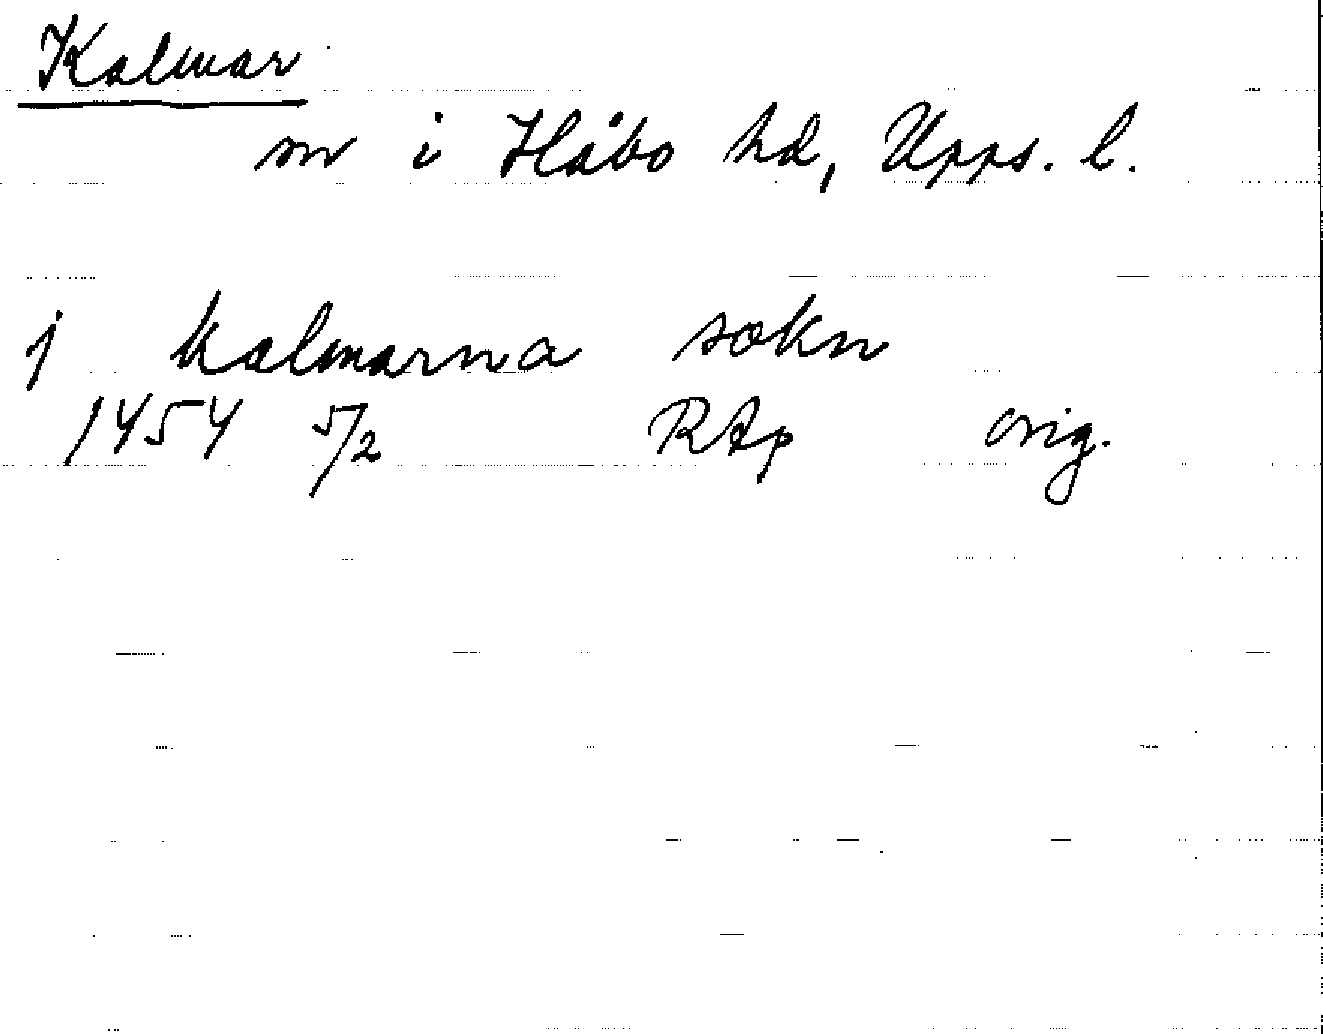 Kalmar
sn i Håbo hd, Upps. l.
j kalmarna sokn
1454 5/2 RAp orig.